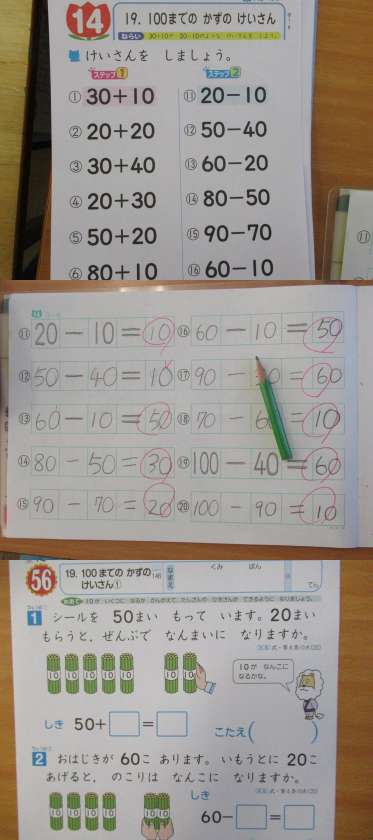 14
19. 100までの かずの けいさん
ねらい
けいさんを しましょう。
ステップ1
ステップ2
① 30+10
② 20+20
③ 30+40
④ 20+30
⑤ 50+20
⑥ 80+10
⑪ 20-10
⑫ 50-40
⑬ 60-20
⑭ 80-50
⑮ 90-70
⑯ 60-10
⑪
⑪ 20-10=10
⑫ 50-40=10
⑬ 60-10=50
⑭ 80-50=30
⑮ 90-70=20
⑯ 60-10=50
⑰ 90- 0=60
⑱ 70-6 =10
⑲ 100-40=60
⑳ 100-90=10
56
19. 100までの かずの
けいさん①
なまえ
くみ ばん
てん
1 シールを 50まい もって います。20まい
もらうと、ぜんぶで なんまいに なりますか。
10 10 10 10 10 10 10
10が なんこに
なるかな。
しき 50+ =
こたえ( )
2 おはじきが 60こ あります。いもうとに 20こ
あげると、のこりは なんこに なりますか。
しき
10 10 10 10 10 10
60- =